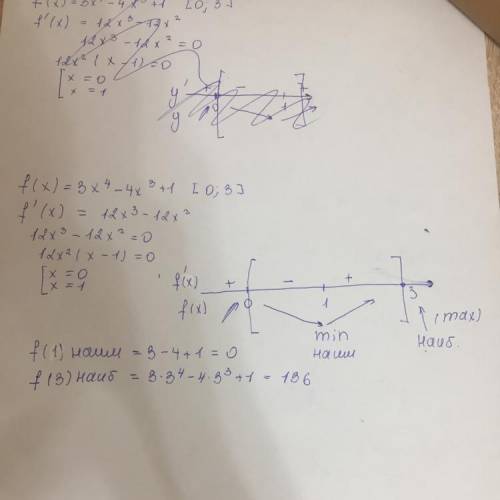 f(x)=3x⁴-4x³+1 [0;3]
f'(x) = 12x³-12x²
12x³-12x²=0
12x²(x-1)=0
[x=0
x=1
y' + -
y 0 1
f(x)=3x⁴-4x³+1 [0;3]
f'(x) = 12x³-12x²
12x³-12x²=0
12x²(x-1)=0
[x=0
x=1
f'(x) + - +
f(x) 0 1 3
min
наим
(max)
наиб.
f(1) наим = 3-4+1=0
f(3) наиб = 3·3⁴-4·3³+1 = 136